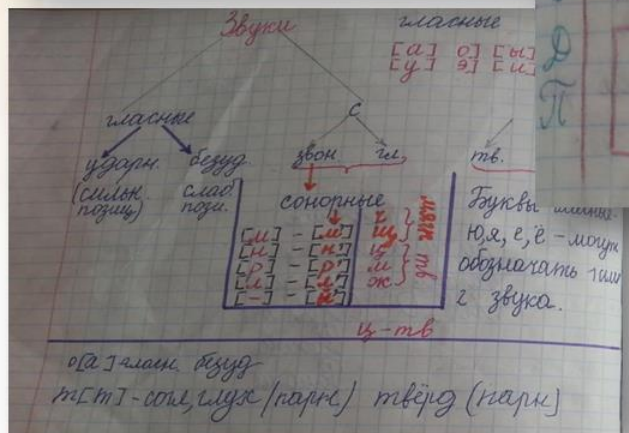 Звуки
гласные
[а] о] [ы]
[у] э] [и]
гласные С
ударн. безуд. звон гл. тв.
(сильн. слаб.
позиц) пози.
сонорные
[м] - [м']
[н] - [н']
[р] - [р']
[л] - [л']
[-] - [й']
ч
щ
ц
ш
ж
мягк
тв
Буквы
ю, я, е, ё - могут
обозначать 1 или
2 звука.
ц - тв
о[а] - гласн. безуд
т[т] - согл, глух (парн) твёрд (парн]
Д
П